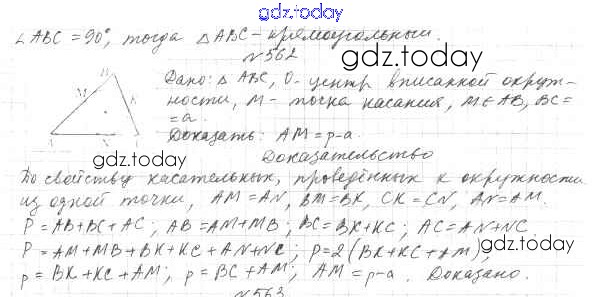 gdz.today
∠ABC = 90°, тогда △ABC - прямоугольный.
№562
gdz.today
Дано: △ABC, O - центр вписанной окруж-
ности, M - точка касания, M∈AB, BC =
= a.
Доказать: AM = p-a.
M
gdz.today
Доказательство
По свойству касательных, проведённых к окружности
из одной точки, AM = AN, BM = BK, CK = CN, AN = AM.
P = AB+BC+AC; AB = AM+MB; BC = BK+KC; AC = AN+NC.
gdz.today
P = AM+MB+BK+KC+AN+NC; P = 2(BK+KC+AM);
p = BK+KC+AM; p = BC+AM; AM = p-a. Доказано.
gdz.today
№563